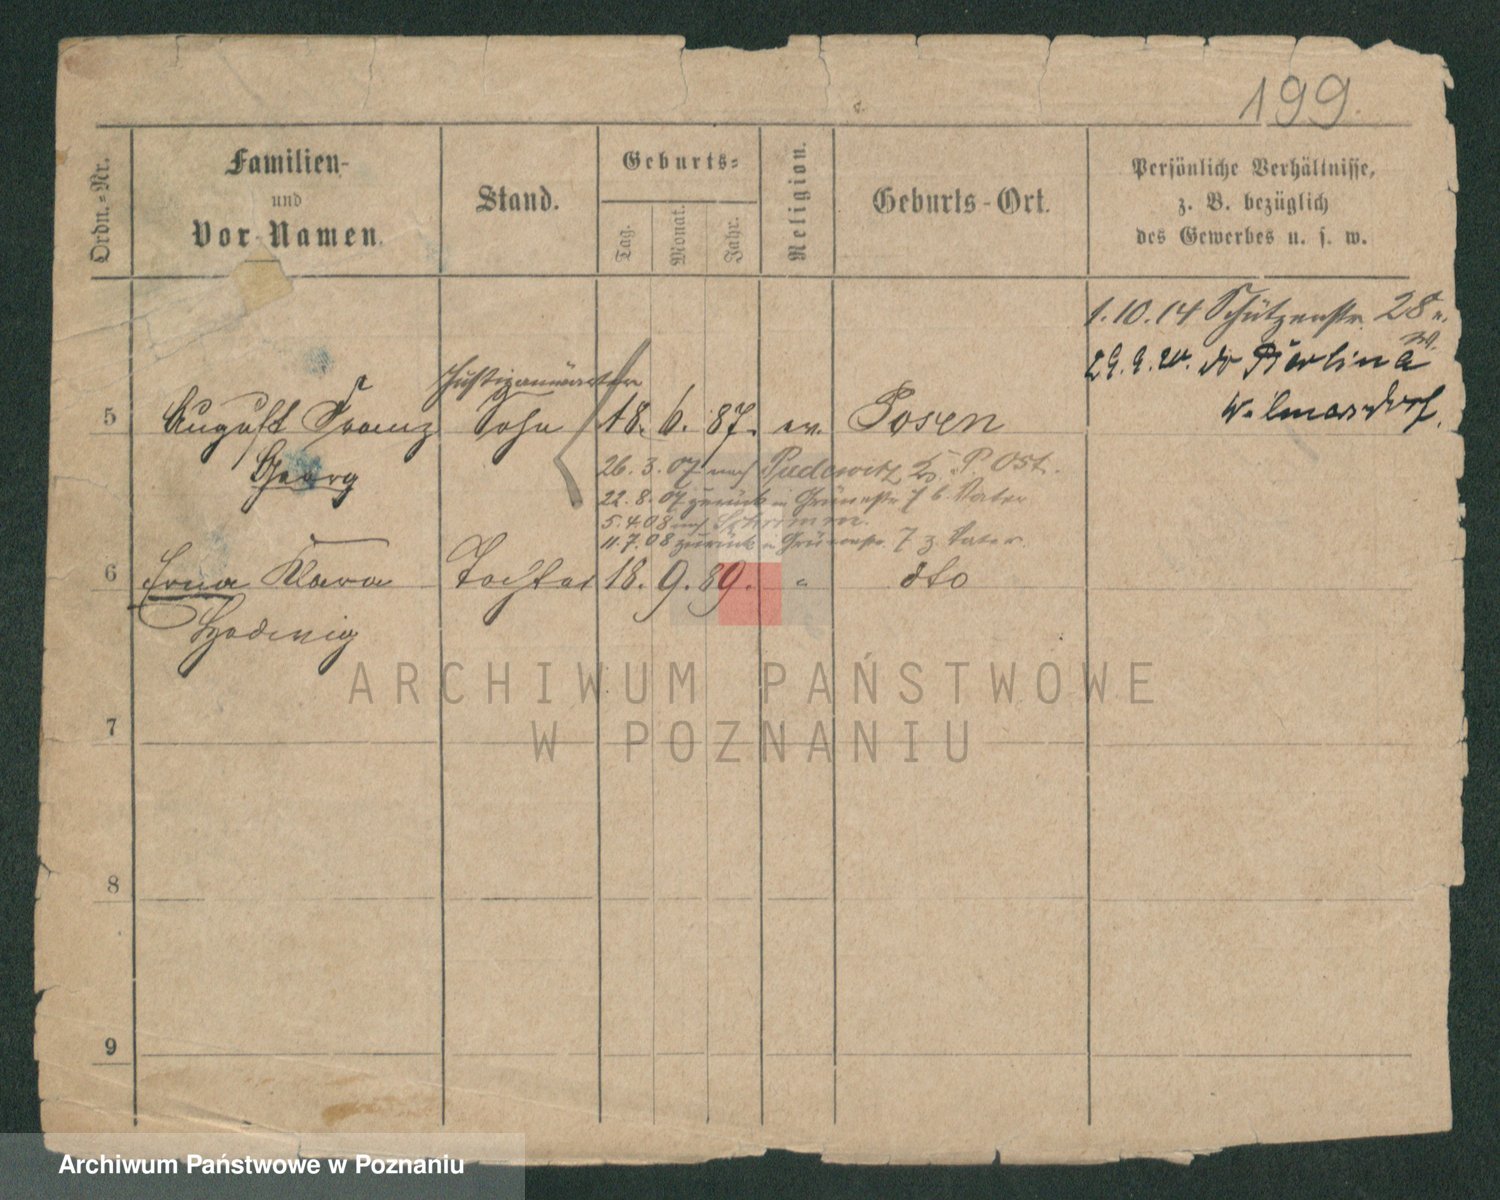 199.
Ordn.-Nr.
Familien-
und
Vor-Namen.
Stand.
Geburts-
Tag.
Monat.
Jahr.
Religion.
Geburts-Ort.
Persönliche Verhältnisse,
z. B. bezüglich
des Gewerbes u. s. w.
1.10.14 Schützenstr. 28
29.9.20. Berlin
Wilmersdorf.
Justizanwärter
5 August Franz Sohn 18. 6. 87. ev. Posen
Georg
26.3.07 nach Pudewitz P. Ost.
22.8.07 zurück Grünestr 7 b. Vater
5.4.08 nach Schrimm.
11.7.08 zurück Grünestr. 7 z. Vater.
6 Erna Klara Tochter 18. 9. 89. " dto
Hedwig
7
8
9
ARCHIWUM PAŃSTWOWE
W POZNANIU
Archiwum Państwowe w Poznaniu